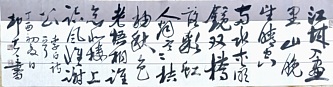 江城如画
里山晚
望晴空
两水夹明
镜双橋
落彩虹
人烟寒桔
柚秋色
老梧桐谁
念北楼上
临风怀谢
公李白诗